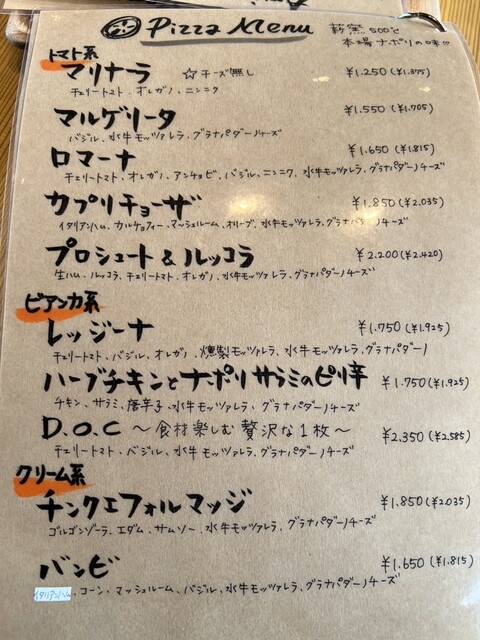 Pizza Menu
薪窯 500℃
本場ナポリの味!!!
トマト系
マリナーラ ☆チーズ無し ¥1.250(¥1.375)
チェリートマト、オレガノ、ニンニク
マルゲリータ ¥1.550(¥1.705)
バジル、水牛モッツァレラ、グラナパダーノチーズ
ロマーナ ¥1.650(¥1.815)
チェリートマト、オレガノ、アンチョビ、バジル、ニンニク、水牛モッツァレラ、グラナパダーノチーズ
カプリチョーザ ¥1.850(¥2.035)
イタリアンハム、カルチョフィー、マッシュルーム、オリーブ、水牛モッツァレラ、グラナパダーノチーズ
プロシュート&ルッコラ ¥2.200(¥2.420)
生ハム、ルッコラ、チェリートマト、オレガノ、水牛モッツァレラ、グラナパダーノチーズ
ビアンカ系
レッジーナ ¥1.750(¥1.925)
チェリートマト、バジル、オレガノ、燻製モッツァレラ、水牛モッツァレラ、グラナパダーノ
ハーブチキンとナポリサラミのピリ辛 ¥1.750(¥1.925)
チキン、サラミ、唐辛子、水牛モッツァレラ、グラナパダーノチーズ
D.O.C 〜食材楽しむ贅沢な1枚〜 ¥2.350(¥2.585)
チェリートマト、バジル、水牛モッツァレラ、グラナパダーノチーズ
クリーム系
チンクエフォルマッジ ¥1.850(¥2.035)
ゴルゴンゾーラ、エダム、サムソー、水牛モッツァレラ、グラナパダーノチーズ
バンビ ¥1.650(¥1.815)
イタリアンハム、コーン、マッシュルーム、バジル、水牛モッツァレラ、グラナパダーノチーズ